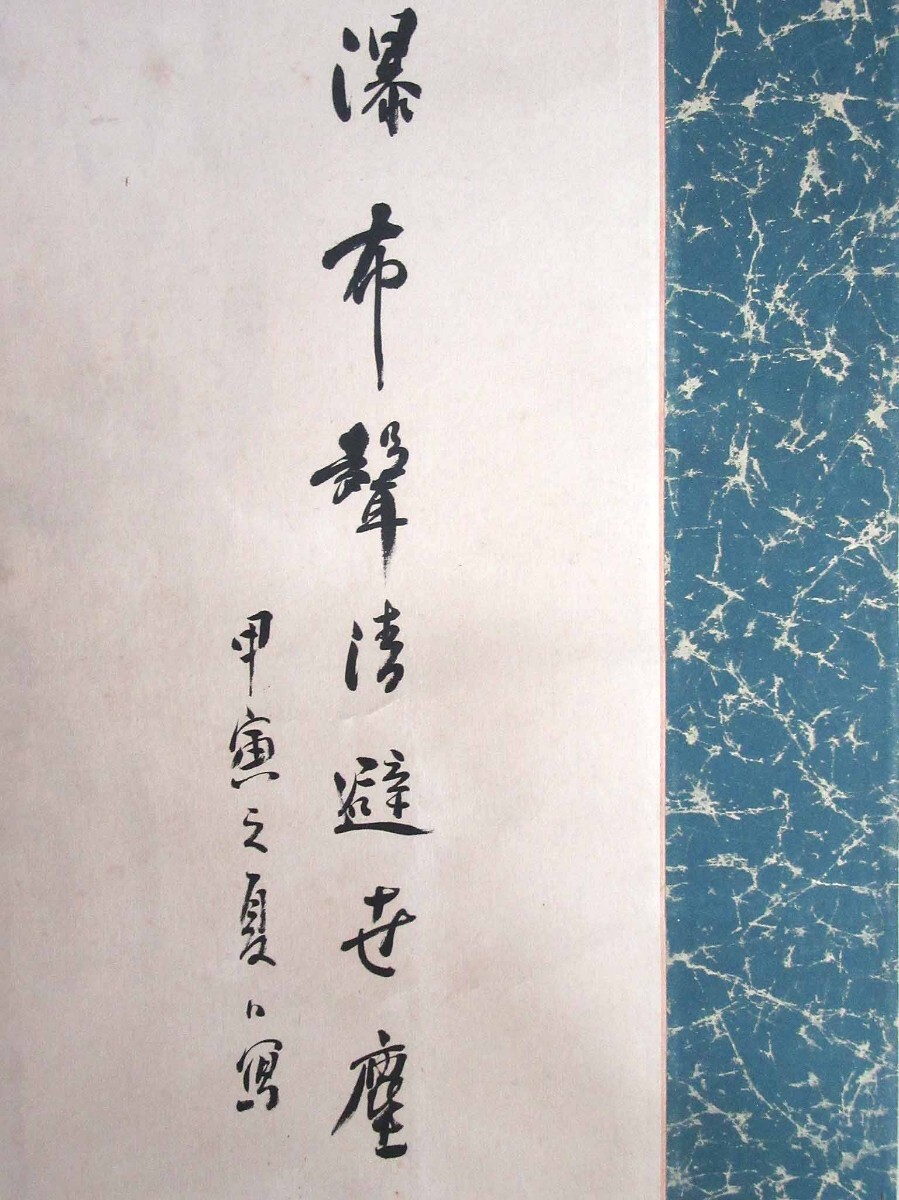 瀑布聲清避世塵
甲寅之夏日寫